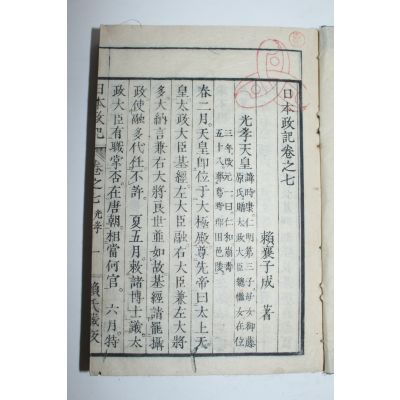 日本政記卷之七
賴襄子成 著
光孝天皇 諱時康仁明第三子母女御藤
原氏贈太政大臣總繼女在位
三年改元一曰仁和崩壽
五十八葬葛野郡田邑陵
春二月天皇即位于大極殿尊先帝曰太上天
皇太政大臣基經左大臣融右大臣兼左大將
多大納言兼右大將良世並如故基經請罷攝
政使融多代任不許。夏五月敕諸博士議太
政大臣有職掌否在唐朝相當何官。六月特
日本政記 卷之七 光孝 一 賴氏藏版